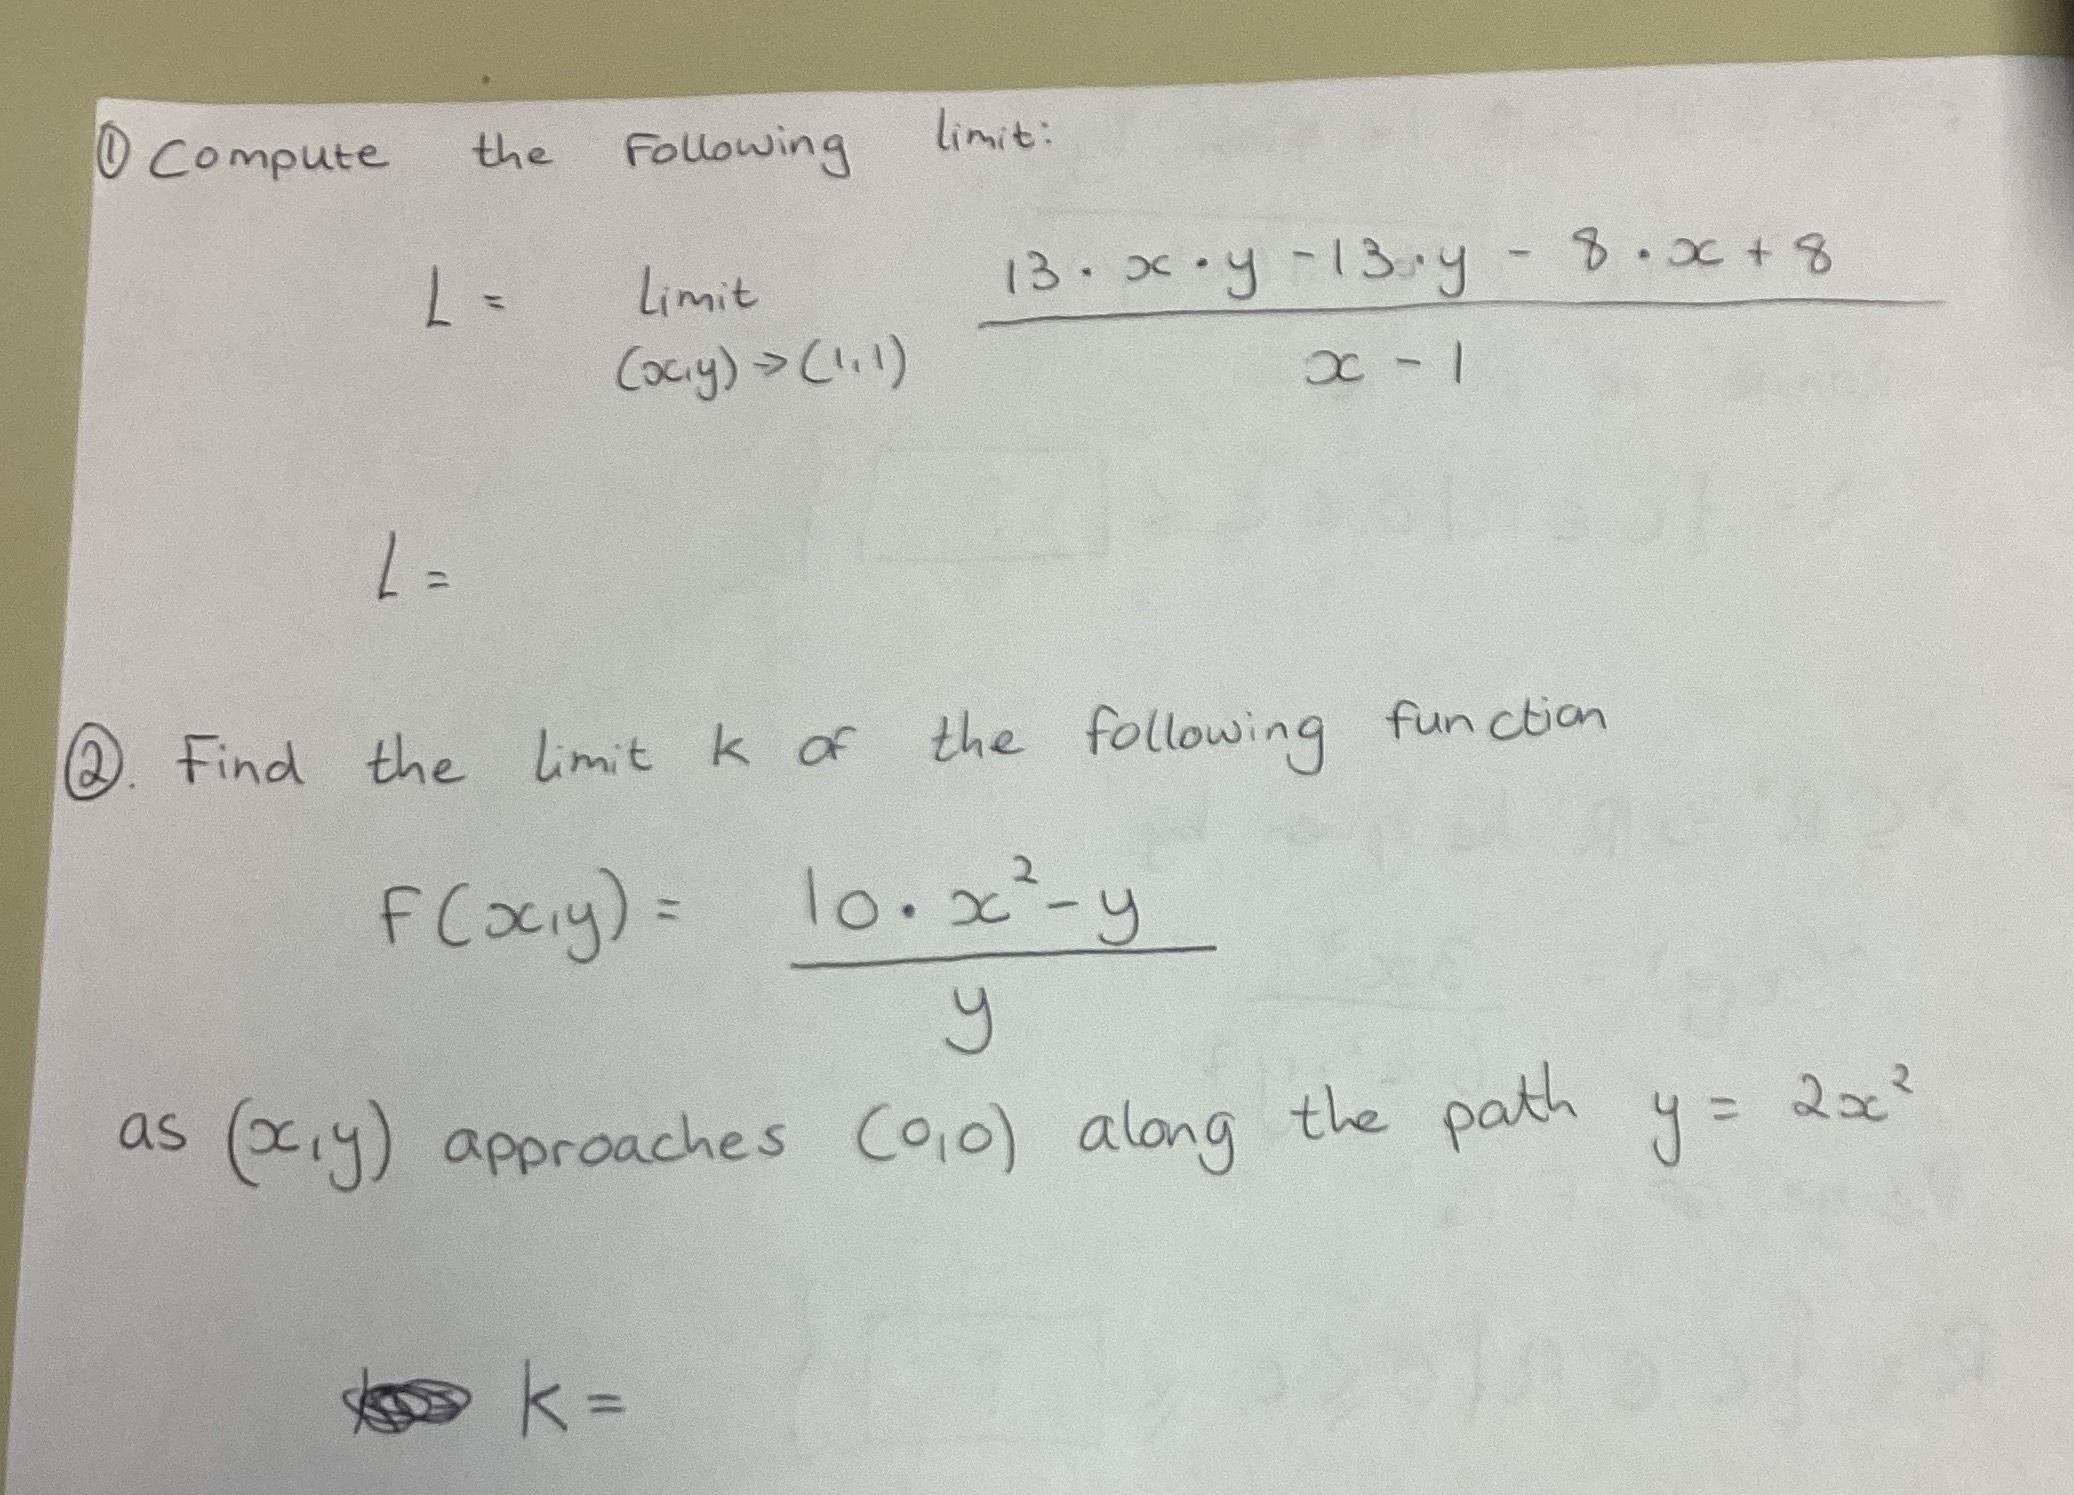 ① Compute the Following limit:
L = Limit 13 · x · y - 13 · y - 8 · x + 8
(x,y) → (1,1) x - 1
L =
②. Find the limit k of the following function
F(x,y) = 10 · x² - y
y
as (x,y) approaches (0,0) along the path y = 2x²
k =